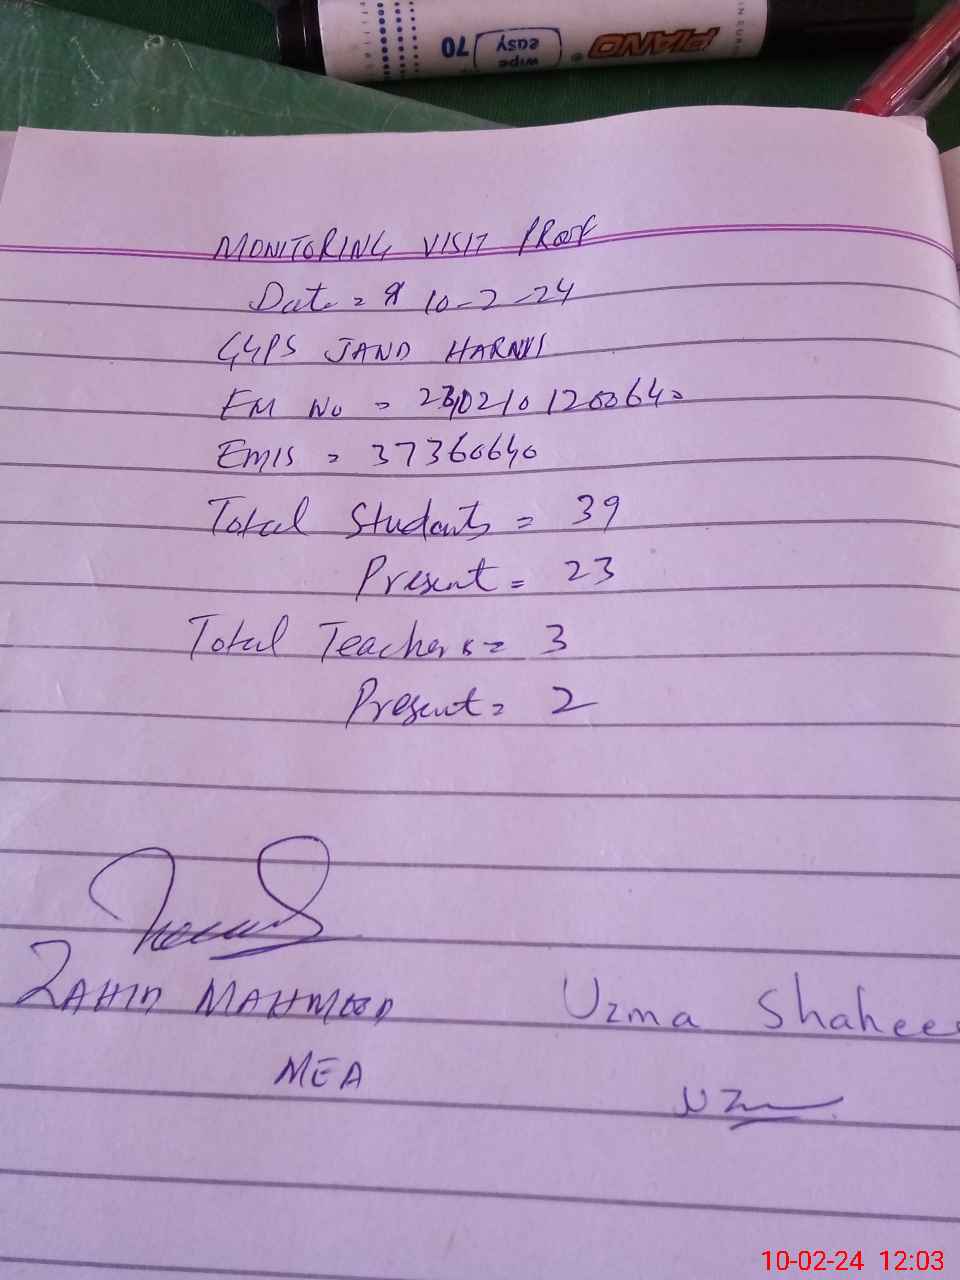 PIANO
wipe easy
70
MONITORING VISIT PROOF
Date = 10-2-24
GGPS JAND HARNYS
EM No = 2302101200640
EMIS = 37360640
Total Students = 39
Present = 23
Total Teachers = 3
Present = 2
ZAHID MAHMOOD
Uzma Shahee
MEA
UZ
10-02-24 12:03